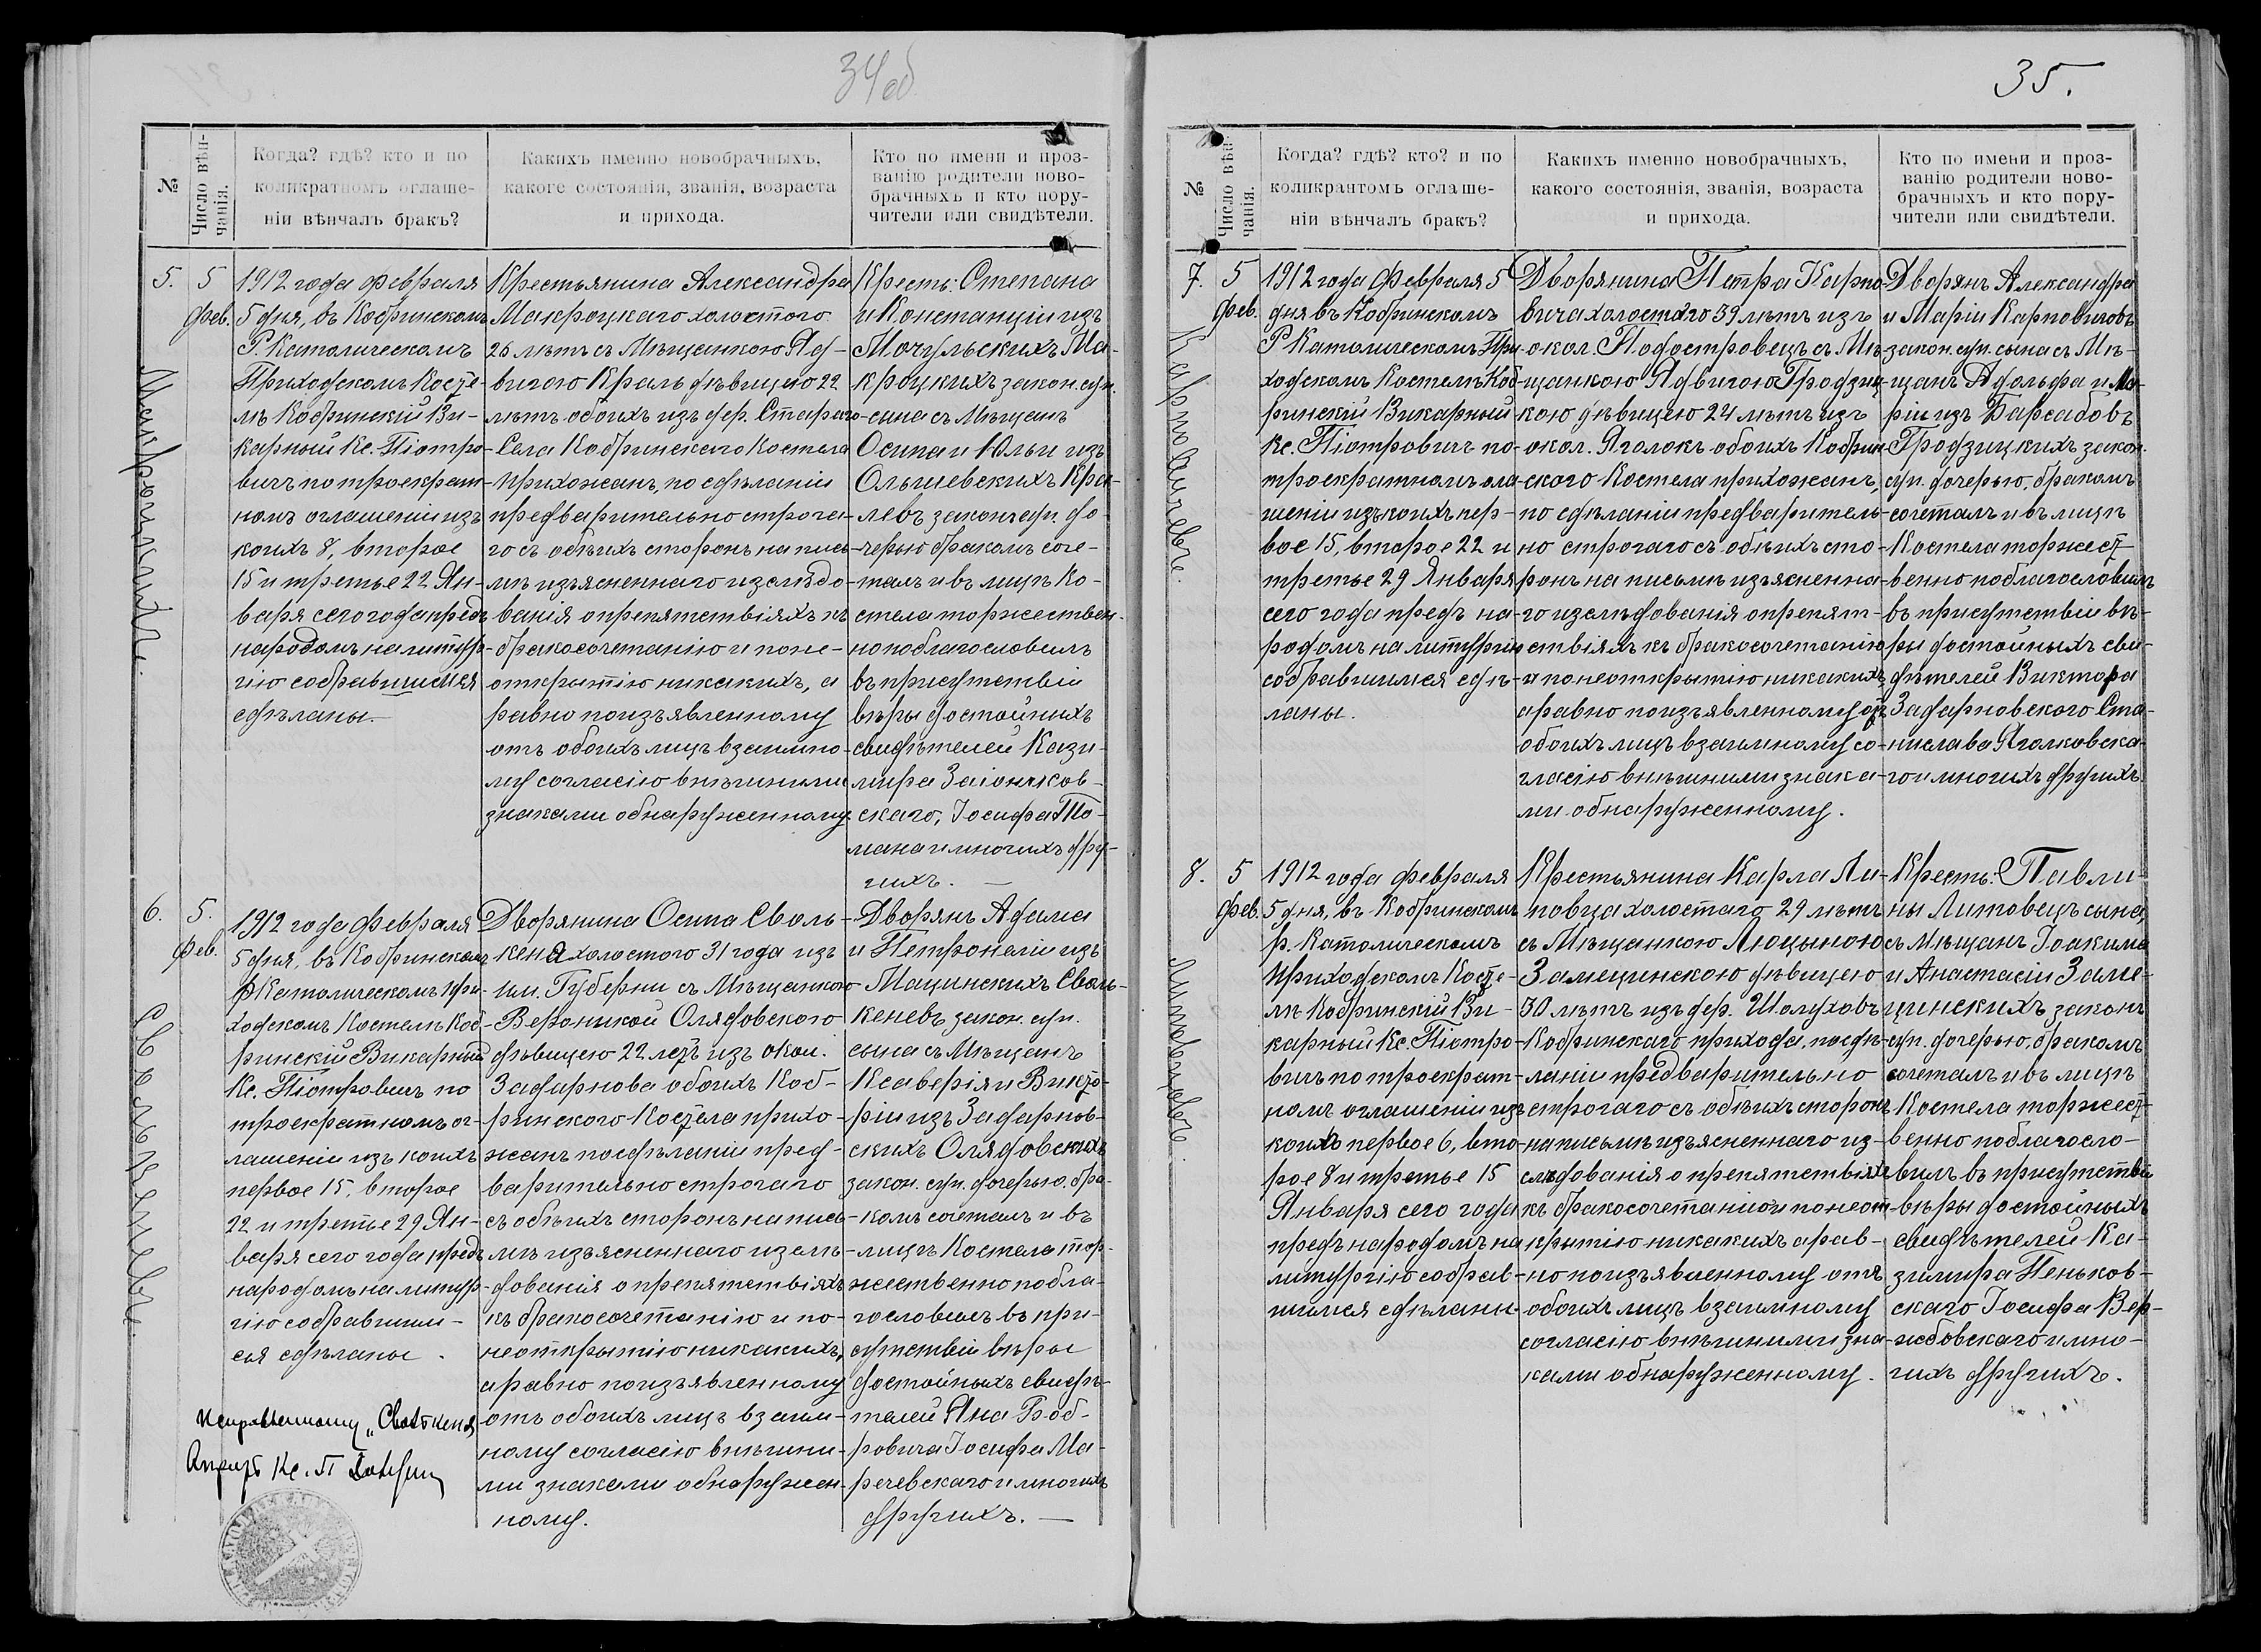 34об
№
Число вѣн-
чанія.
Когда? гдѣ? кто и по
коликратномъ оглаше-
ніи вѣнчалъ бракъ?
Какихъ именно новобрачныхъ,
какого состоянія, званія, возраста
и прихода.
Кто по имени и проз-
ванію родители ново-
брачныхъ и кто пору-
чители или свидѣтели.
5.
5
фев.
1912 года февраля
5 дня, въ Кобринскомъ
Р. Католическомъ
Приходскомъ Косте-
лѣ Кобринскій Ви-
карный Кс. Піотро-
вичъ по троекрат-
номъ оглашеніи изъ
коихъ 8, второе
15 и третье 22 Ян-
варя сего года предъ
народомъ на литур-
гію собравшимся
сдѣланы.
Крестьянина Александра
Макроцкаго холостого
26 лѣтъ съ Мѣщанкою Яд-
вигою Краль дѣвицею 22
лѣтъ обоихъ изъ дер. Стараго-
Села Кобринскаго Костела
прихожанъ, по сдѣланіи
предварительно строга-
го съ обѣихъ сторонъ на пись-
мѣ изъясненнаго изслѣдо-
ванія о препятствіяхъ къ
бракосочетанію и поне-
открытію никакихъ, а
равно по изъявленному
отъ обоихъ лицъ взаимно-
му согласію внѣшними
знаками обнаруженному.
Кресть: Степана
и Констанціи изъ
Мочульскихъ Ма-
кроцкихъ закон. суп.
сына съ Мѣщанъ
Осипа и Юльи изъ
Ольшевскихъ Кра-
левъ закон. суп. до-
черью бракомъ соче-
талъ и въ лицѣ Ко-
стела торжествен-
но поблагословилъ
въ присутствіи
вѣры достойныхъ
свидѣтелей Кази-
мира Заіончков-
скаго, Іосифа То-
мана и многихъ дру-
гихъ.
6.
5.
фев.
1912 года февраля
5 дня, въ Кобринскомъ
Р Католическомъ При-
ходскомъ Костелѣ Коб-
ринскій Викарный
Кс. Піотровичъ по
троекратномъ ог-
лашеніи изъ коихъ
первое 15, второе
22 и третье 29 Ян-
варя сего года предъ
народомъ на литур-
гію собравшим-
ся сдѣланы.
Дворянина Осипа Своль-
кеня холостого 31 года изъ
им. Губерни съ Мѣщанкою
Вероникой Олядовского
дѣвицею 22 летъ изъ окол.
Задарнова обоихъ Коб-
ринского Костела прихо-
жанъ по сдѣланіи пред-
варительно строгаго
съ обѣихъ сторонъ на пись-
мѣ изъясненнаго изслѣ-
дованія о препятствіяхъ
къ бракосочетанію и по-
неоткрытію никакихъ,
а равно по изъявленному
отъ обоихъ лицъ взаим-
ному согласію внѣшни-
ми знаками обнаружен-
ному.
Дворянъ Адама
и Петронели изъ
Мацинскихъ Сволъ-
кеневъ закон. суп.
сына съ Мѣщанъ
Ксаверія и Викто-
ріи изъ Задарнов-
скихъ Олядовскихъ
закон. суп. дочерью. бра-
комъ сочеталъ и въ
лицѣ Костела тор-
жественно побла-
гословилъ въ при-
сутствіи вѣры
достойныхъ свидѣ-
телей Яна Боб-
ровича Іосифа Ма-
речевскаго и многихъ
другихъ.
Макроцкихъ.
Сволькеневъ.
35.
№
Число вѣн-
чанія.
Когда? гдѣ? кто? и по
коликрантомъ оглаше-
ніи вѣнчалъ бракъ?
Какихъ именно новобрачныхъ,
какого состоянія, званія, возраста
и прихода.
Кто по имени и проз-
ванію родители ново-
брачныхъ и кто пору-
чители или свидѣтели.
7.
5
фев.
1912 года Февраля 5
дня въ Кобринскомъ
Р Католическомъ При-
ходскомъ Костелѣ Коб-
ринскій Викарный
Кс. Піотровичъ по-
троекратномъ огла-
шеніи изъ коихъ пер-
вое 15, второе 22 и
третье 29 Января
сего года предъ на-
родомъ на литургію
собравшимся сдѣ-
ланы.
Дворянина Петра Карпо-
вича холостаго 39 лѣтъ изъ
окол. Подостровецъ съ Мѣ-
щанкою Ядвигою Гродзиц-
кою дѣвицею 24 лѣтъ изъ
окол. Яголокъ обоихъ Кобрин-
ского Костела прихожанъ,
по сдѣланіи предваритель-
но строгаго съ обѣихъ сто-
ронъ на письмѣ изъясненна-
го изслѣдованія о препят-
ствіяхъ къ бракосочетанію
и по неоткрытію никакихъ,
а равно по изъявленному отъ
обоихъ лицъ взаимному со-
гласію внѣшними знака-
ми обнаруженному.
Дворянъ Александра
и Маріи Карповичовъ
закон. суп. сына съ Мѣ-
щанъ Адольфа и Ма-
ріи изъ Барсабовъ
Гродзицкихъ закон.
суп. дочерью, бракомъ
сочеталъ и въ лицѣ
Костела торжест-
венно поблагословилъ
въ присутствіи вѣ-
ры достойныхъ сви-
дѣтелей Виктора
Задарновского Ста-
нислава Яголковска-
го и многихъ другихъ.
8.
5
фев.
1912 года февраля
5 дня, въ Кобринскомъ
р. Католическомъ
Приходскомъ Косте-
лѣ Кобринскій Ви-
карный Кс. Піотро-
вичъ по троекрат-
номъ оглашеніи изъ
коихъ первое 6, вто-
рое 8 и третье 15
Января сего года
предъ народомъ на
литургію собрав-
шимся сдѣланы.
Крестьянина Карла Ли-
повца холостаго 29 лѣтъ
съ Мѣщанкою Люцыною
Замецинскою дѣвицею
30 лѣтъ изъ дер. Шолуховъ
Кобринскаго прихода, по сдѣ-
ланіи предварительно
строгаго съ обѣихъ сторонъ
на письмѣ изъясненнаго из-
слѣдованія о препятствіяхъ
къ бракосочетанію и по неот-
крытію никакихъ а рав-
но по изъявленному отъ
обоихъ лицъ взаимному
согласію внѣшними зна-
ками обнаруженному.
Кресть: Павли-
ны Литовецъ сына,
съ Мѣщанъ Іоакима
и Анастасіи Заме-
цинскихъ законъ
суп. дочерью, бракомъ
сочеталъ и въ лицѣ
Костела торжест-
венно поблагосло-
вилъ въ присутствіи
вѣры достойныхъ
свидѣтелей Ка-
зимира Пеньков-
скаго Іосифа Вер-
жбовскаго и мно-
гихъ другихъ.
Карповичевъ.
Литовецовъ.